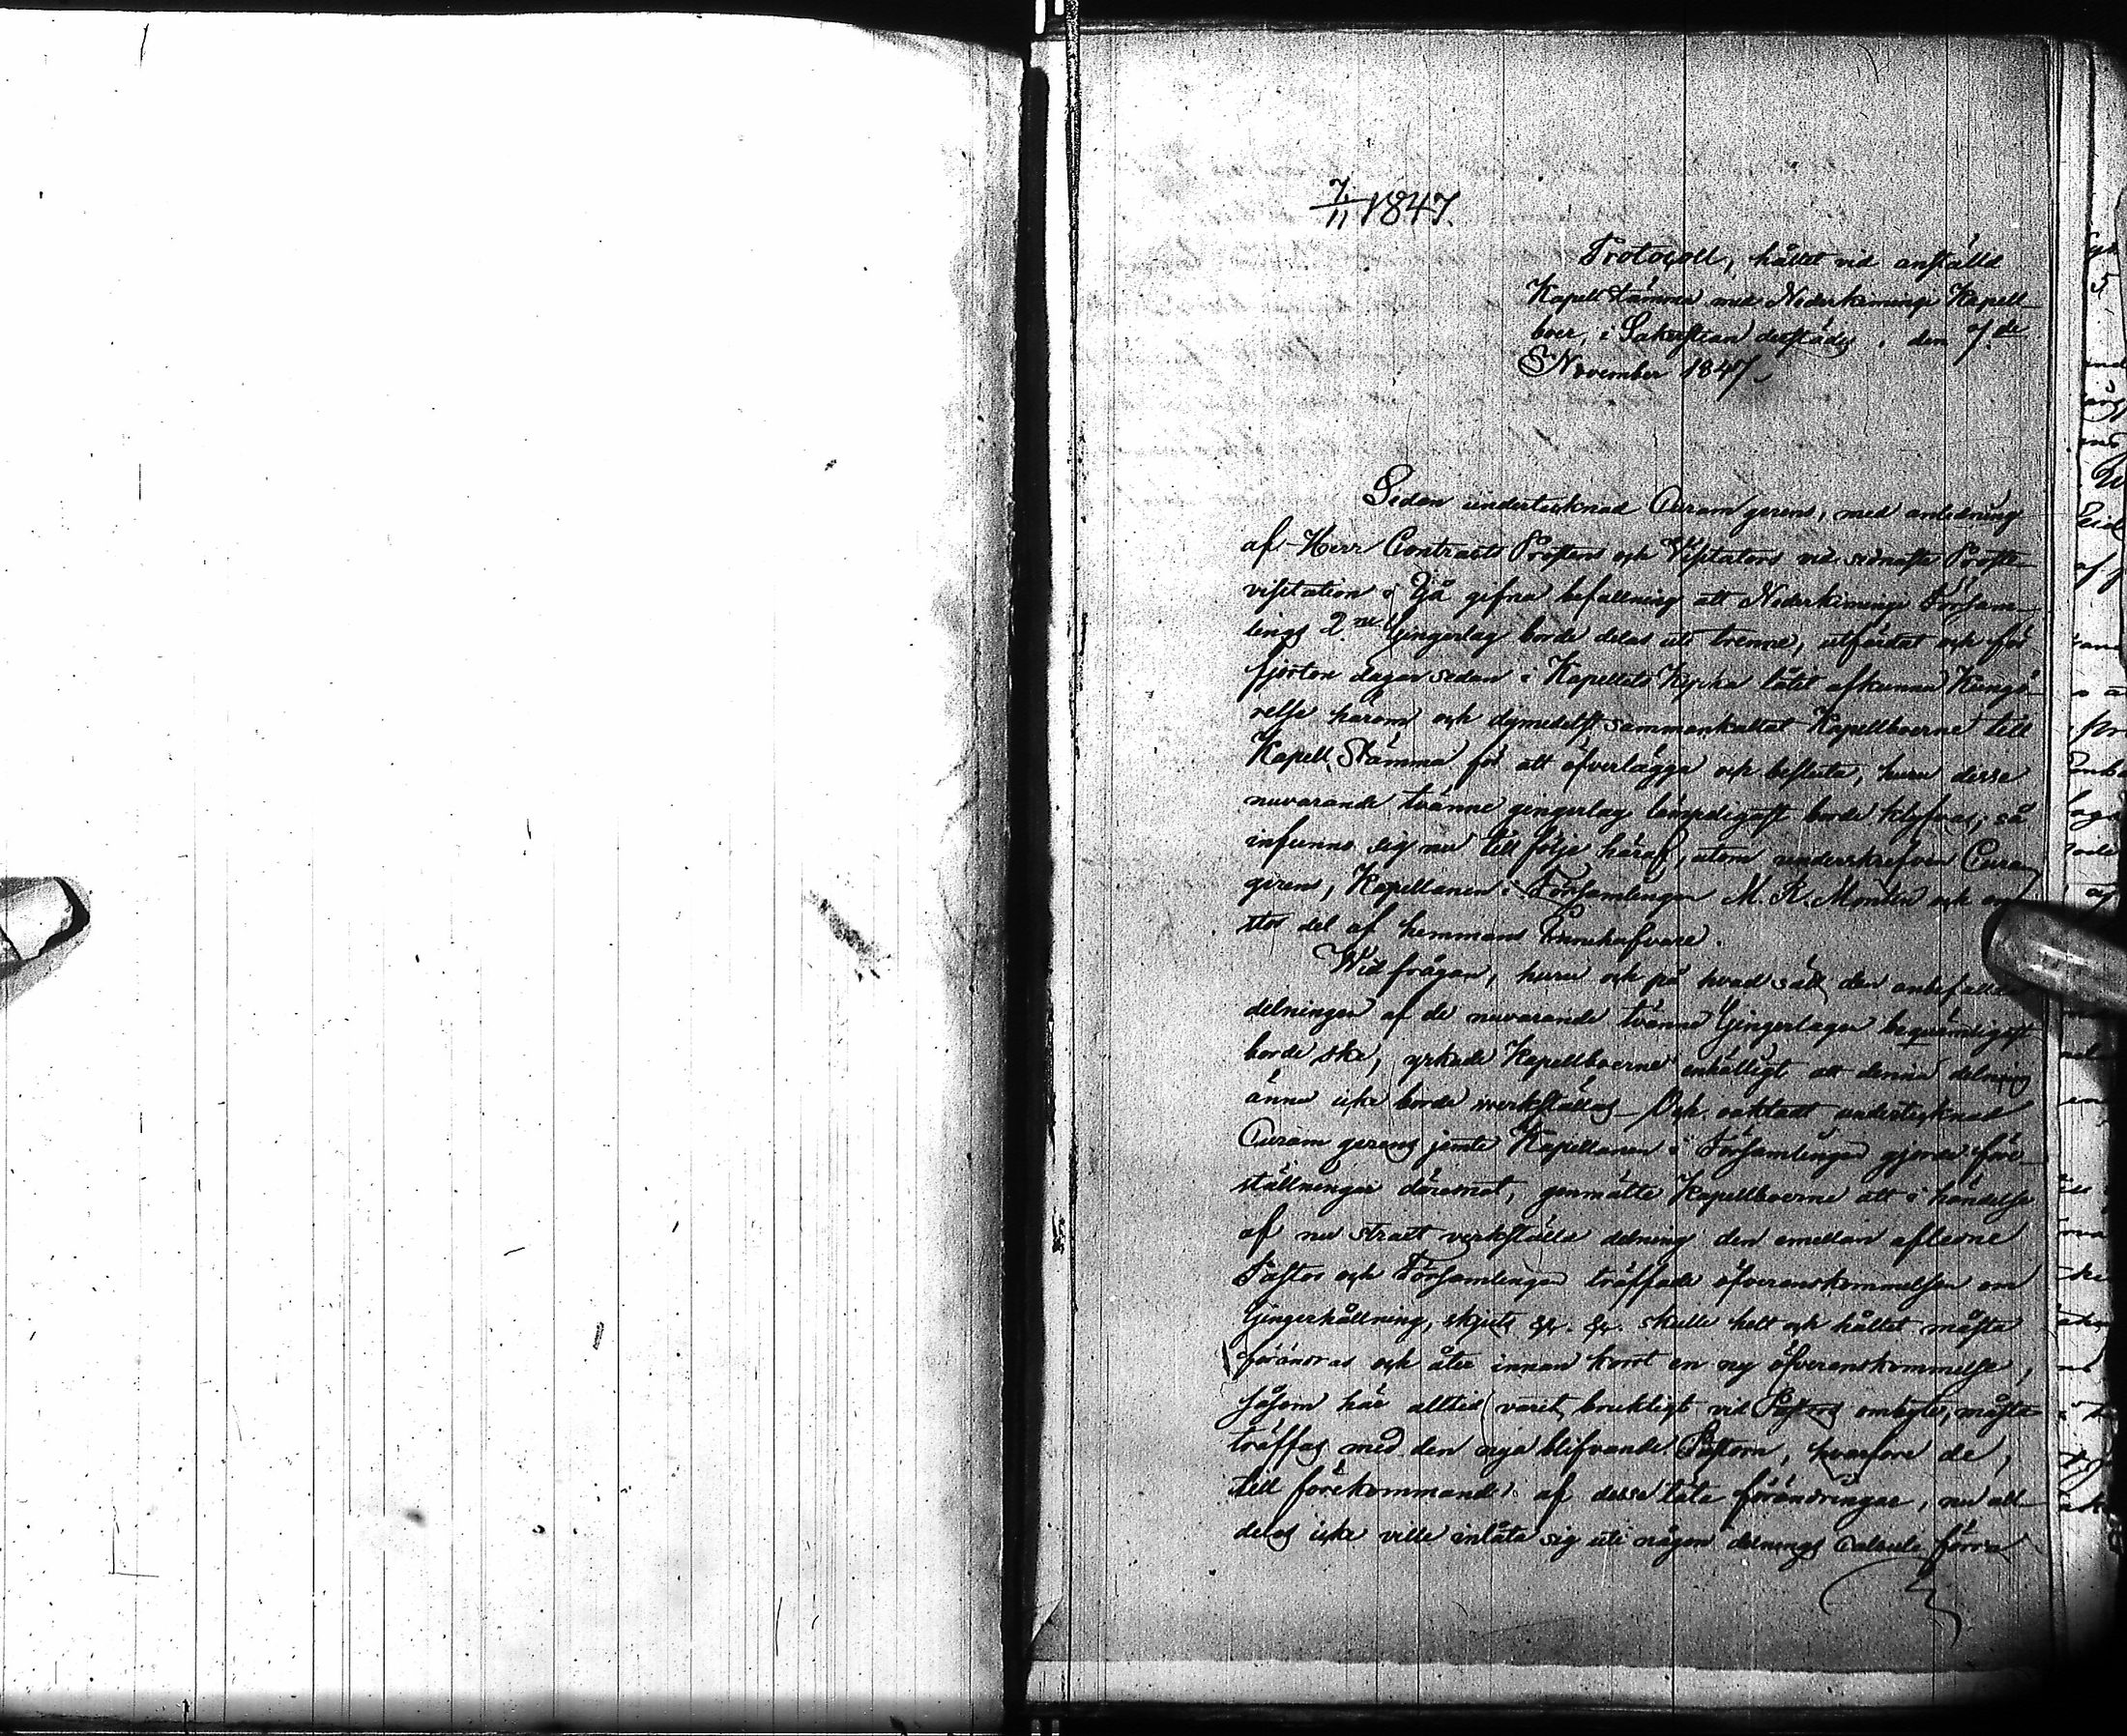 7/11 1847.
Protocoll, hållet vid anstäld
Kapell Stämma med Nederkiminge Kapell-
boer, i Sakerstian derstädes, den 7.de
November 1847.
Sedan undertecknad Curam gerens, med anledning
af Herr Contracts Prostens och Visitators vid sednaste Proste-
visitation i Ijå gifna befallning att Nederkiminge Försam-
lings 2.ne Gingerlag borde delas uti trenne, utfärdat och för
fjorton dagar sedan i Kapellets Kyrka låtit afkunna Kungö-
relse härom och dymedelst sammankallat Kapellboerne till
Kapell Stämma för att öfverlägga och besluta, huru desse
nuvarande tvänne gingerlag lämpeligast borde klyfvas; så
infunno sig nu till följe häraf, utom underskrefven Curam
gerens, Kapellanen i Församlingen M. R. Montin och en
stor del af hemmans Innehafvare.
Wid frågan, huru och på hvad sätt den anbefallda
delningen af de nuvarande tvänne Gingerlagen beqvämligast
borde ske, yrkade Kapellboerne enhälligt att denna delning
ännu icke borde verkställas. Och oaktadt undertecknad
Curam gerens jemte Kapellanen i Församlingen gjorde före-
ställningar däremot, genmälte Kapellboerne att i händelse
af nu straxt verkställd delning den emellan afledne
Pastor och Församlingen träffade öfverenskommelsen om
Gingerhållning, skjuts &c. &c. skulle helt och hållet måste
förändras och åter innan kort en ny öfverenskommelse,
såsom här alltid varit brukligt vid Pastors ombyte, måste
träffas med den nya blifvande Pastorn, hvarföre de,
till förekommande af desse täta förändringar, nu all-
deles icke ville inlåta sig uti någon delnings Calcule förra